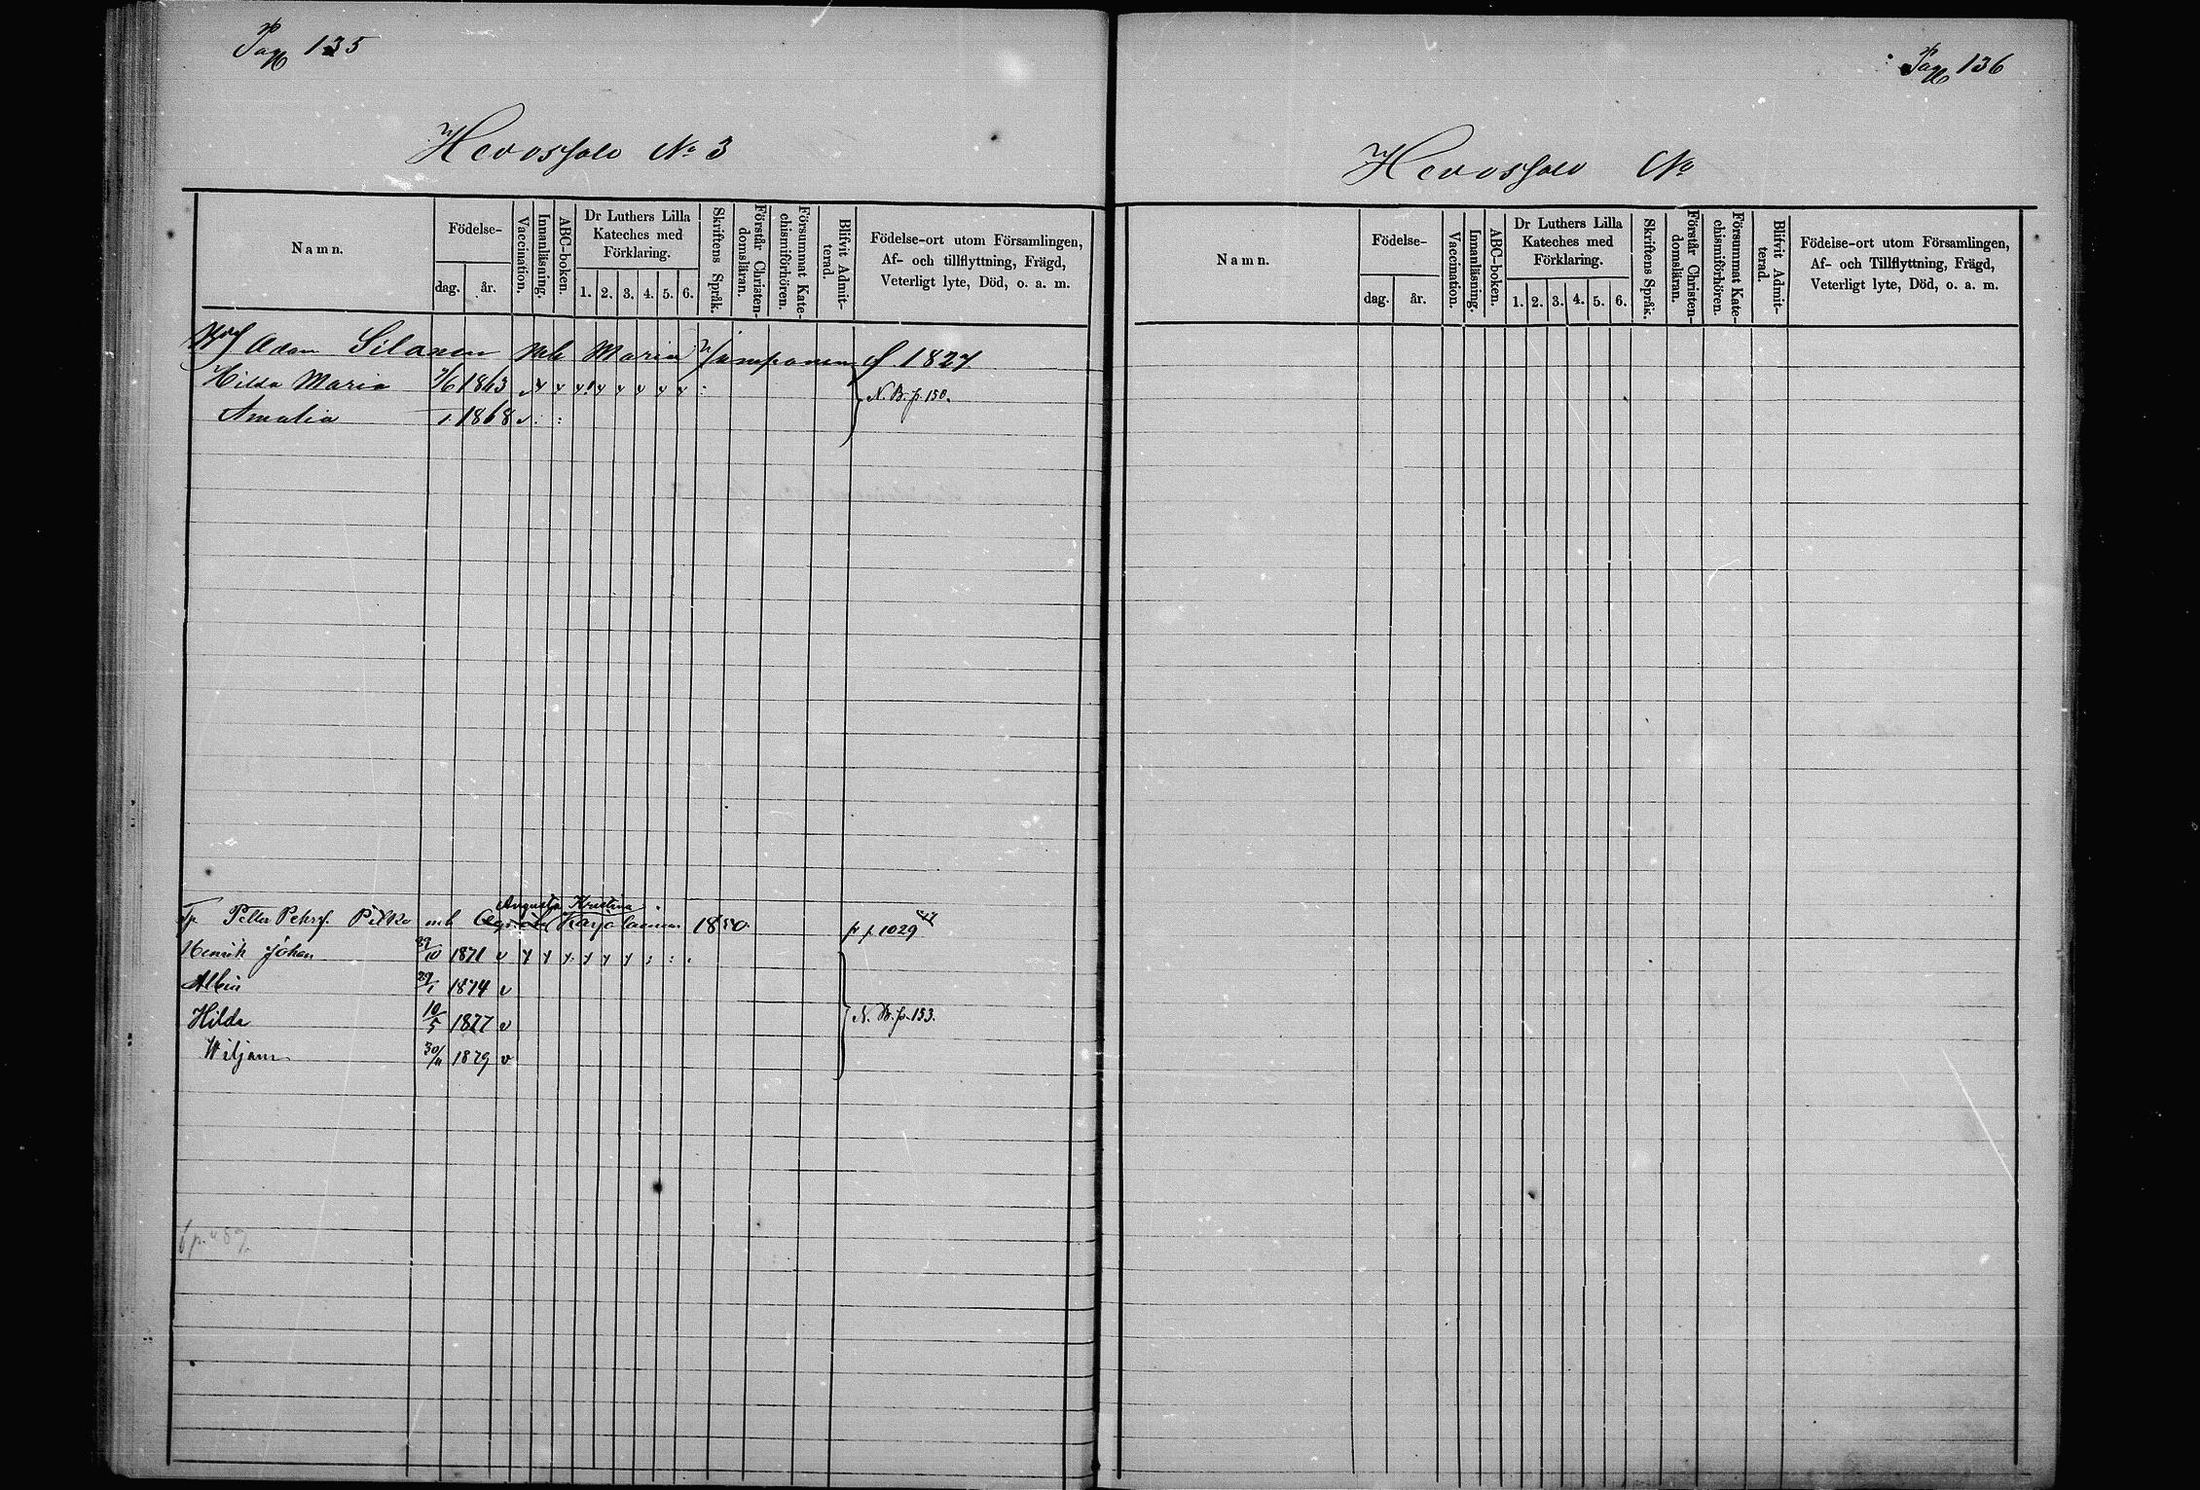 Pag 135
Hevossalo No 3
Namn.
Födelse-
dag.
år.
Vaccination.
Innanläsning.
ABC-boken.
Dr Luthers Lilla
Kateches med
Förklaring.
1. 2. 3. 4. 5. 6.
Skriftens Språk.
Förstår Christen-
domsläran.
Försummat Kate-
chismiförhören.
Blifvit Admit-
terad.
Födelse-ort utom Församlingen,
Af- och tillflyttning, Frägd,
Veterligt lyte, Död, o. a. m.
Adam Silanen mh Maria f. 1827.
Hilda Maria 7/6 1863
N. B. p. 150.
Amalia 1868
Augusta Kristina
Petter Pehrss. Pilkko mh Karjalainen 1850
p. 1029
Henrik Johan 1871
Albin 29/1 1874 v
Hilda 10/5 1877 v
N. B. p. 153.
Wiljam 30/11 1879 v
Pag 136
Hevossalo No
Namn.
Födelse-
dag.
år.
Vaccination.
Innanläsning.
ABC-boken.
Dr Luthers Lilla
Kateches med
Förklaring.
1. 2. 3. 4. 5. 6.
Skriftens Språk.
Förstår Christen-
domsläran.
Försummat Kate-
chismiförhören.
Blifvit Admit-
terad.
Födelse-ort utom Församlingen,
Af- och Tillflyttning, Frägd,
Veterligt lyte, Död, o. a. m.